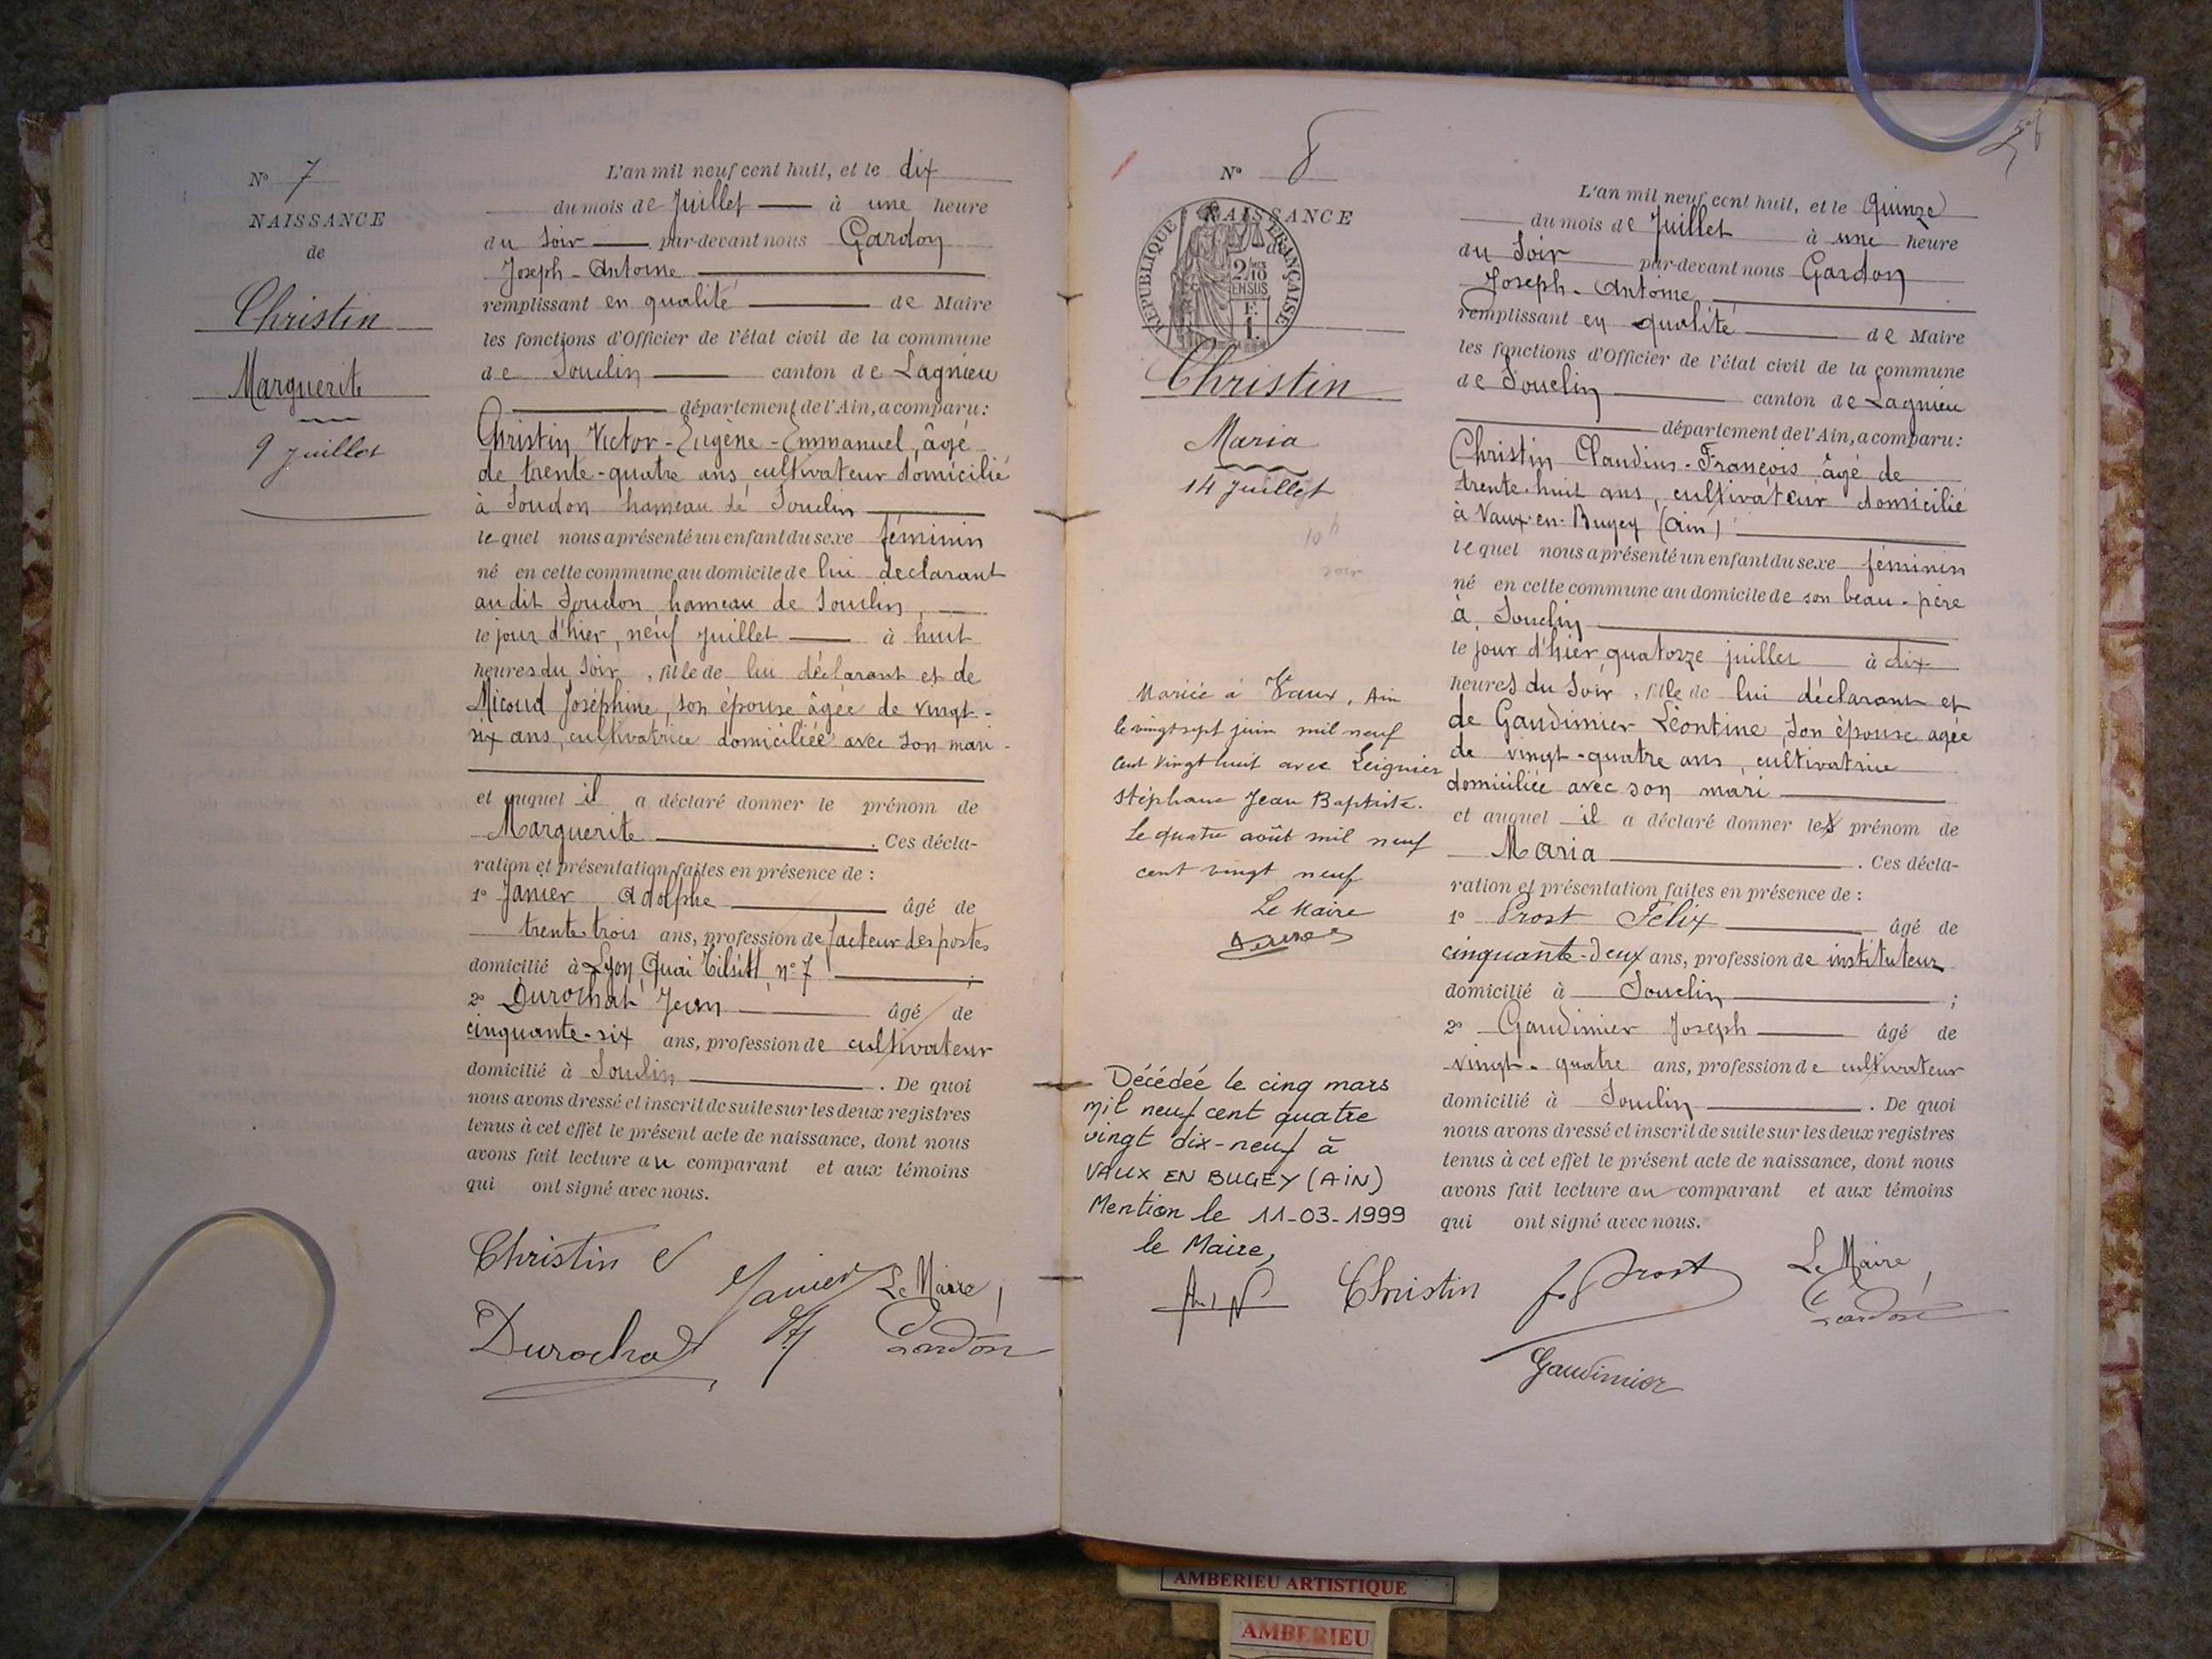 N° 7
NAISSANCE
de
Christin
Marguerite
9 Juillet
L'an mil neuf cent huit, et le dix
du mois de Juillet à une heure
du soir par-devant nous Gardon
Joseph-Antoine
remplissant en qualité de Maire
les fonctions d'Officier de l'état civil de la commune
de Souclin canton de Lagnieu
département de l'Ain, a comparu:
Christin Victor-Eugène-Emmanuel, âgé
de trente-quatre ans cultivateur domicilié
à Soudon hameau de Souclin
le quel nous a présenté un enfant du sexe féminin
né en cette commune au domicile de lui déclarant
au dit Soudon hameau de Souclin,
le jour d'hier, neuf Juillet à huit
heures du soir, fille de lui déclarant et de
Micoud Joséphine, son épouse âgée de vingt-
six ans, cultivatrice domiciliée avec son mari
et auquel il a déclaré donner le prénom de
Marguerite. Ces décla-
ration et présentation faites en présence de :
1° Janier Adolphe âgé de
trente trois ans, profession de facteur des postes
domicilié à Lyon, Quai Tilsitt, n° 7 ;
2° Durochat Jean âgé de
cinquante-six ans, profession de cultivateur
domicilié à Souclin. De quoi
nous avons dressé et inscrit de suite sur les deux registres
tenus à cet effet le présent acte de naissance, dont nous
avons fait lecture au comparant et aux témoins
qui ont signé avec nous.
Christin E
Janier
Le Maire,
Durochat
Gardon
N° 8
NAISSANCE
de
RÉPUBLIQUE FRANÇAISE
2/10
EN SUS
1 F.
Christin
Maria
14 Juillet
10 h
soir
Mariée à Vaux, Ain
le vingt sept juin mil neuf
cent vingt huit avec Leignier
Stéphane Jean Baptiste.
Le quatre août mil neuf
cent vingt neuf
Le Maire
Décédée le cinq mars
mil neuf cent quatre
vingt dix-neuf à
VAUX EN BUGEY (AIN)
Mention le 11-03-1999
le Maire,
L'an mil neuf cent huit, et le Quinze
du mois de Juillet à une heure
du soir par-devant nous Gardon
Joseph-Antoine
remplissant en qualité de Maire
les fonctions d'Officier de l'état civil de la commune
de Souclin canton de Lagnieu
département de l'Ain, a comparu:
Christin Claudius-François âgé de
trente-huit ans, cultivateur domicilié
à Vaux-en-Bugey (Ain)
le quel nous a présenté un enfant du sexe féminin
né en cette commune au domicile de son beau-père
à Souclin
le jour d'hier, quatorze juillet à dix
heures du soir, fille de lui déclarant et
de Gaudimier Léontine, son épouse agée
de vingt-quatre ans, cultivatrice
domiciliée avec son mari
et auquel il a déclaré donner les prénom de
Maria. Ces décla-
ration et présentation faites en présence de :
1° Prost Félix âgé de
cinquante-deux ans, profession de instituteur
domicilié à Souclin ;
2° Gaudimier Joseph âgé de
vingt-quatre ans, profession de cultivateur
domicilié à Souclin. De quoi
nous avons dressé et inscrit de suite sur les deux registres
tenus à cet effet le présent acte de naissance, dont nous
avons fait lecture au comparant et aux témoins
qui ont signé avec nous.
Christin
F. Prost
Le Maire,
Gardon
Gaudimier
AMBERIEU ARTISTIQUE
AMBERIEU